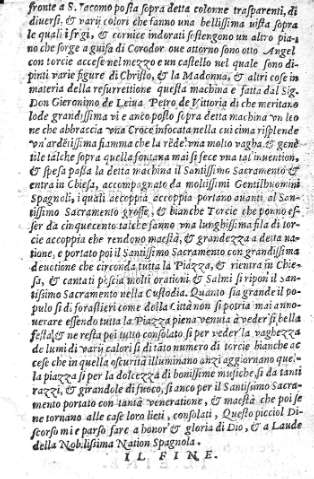 fronte a S. Iacomo posta sopra detta colonne trasparenti, di
diuersi, & varij colori che fanno una bellissima uista sopra
le quali i frgi, & cornice indorati sostengono un altro pia-
no che sorge a guisa di Corodor oue attorno sono otto Angel
con torcie accese nel mezzo e un castello nel quale sono di-
pinti varie figure di Christo, & la Madonna, & altri cose in
materia della resurrettione questa machina e fatta dal Sig.
Don Gieronimo de Leiua Petro de Vittoria di che meritano
lode grandissima vi e anco posto sopra detta machina vn leo
ne che abbraccia vna Croce infocata nella cui cima risplende
vn'ardētissima fiamma che la rēde vna molto vagha & genē
tile talche sopra quella fontana mai si fece vna tal inuention,
& spesa passa la detta machina il Santissimo Sacramento &
entra in Chiesa, accompagnato da moltissimi Gentilhuomini
Spagnoli, i quali accoppia accoppia portano auanti al San-
tissimo Sacramento grosse, & bianche Torcie che ponno es-
ser da cinquecento talche fanno vna lunghissima fila di tor-
cie accoppia che rendono maestà, & grandezza a detta na-
tione, e portato poi il Santissimo Sacramento con grandissima
deuotione che circonda tutta la Piazza, & rientra in Chie-
sa, & cantati poscia molti orationi & Salmi si ripon il san-
tissimo Sacramento nella Custodia. Quanto sia grande il po-
pulo si di forastieri come della Città non si potria mai anno-
uerare essendo tutta la Piazza piena venuta à veder si bella
festa, & ne resta poi tutto consolato si per veder la vaghezza
de lumi di varij colori si di tāto numero di torcie bianche ac
cese che in quella oscurità illuminano anzi aggiornano quella
piazza si per la dolcezza di bonissime musiche si da tanti
razzi, & girandole di fuoco, si anco per il Santissimo Sacra-
mento portato con tantà veneratione, & maestà che poi se
ne tornano alle case loro lieti, consolati, Questo picciol Di-
scorso mi e parso fare a honor & gloria di Dio, & a Laude
della Nobilissima Nation Spagnola.
IL FINE.